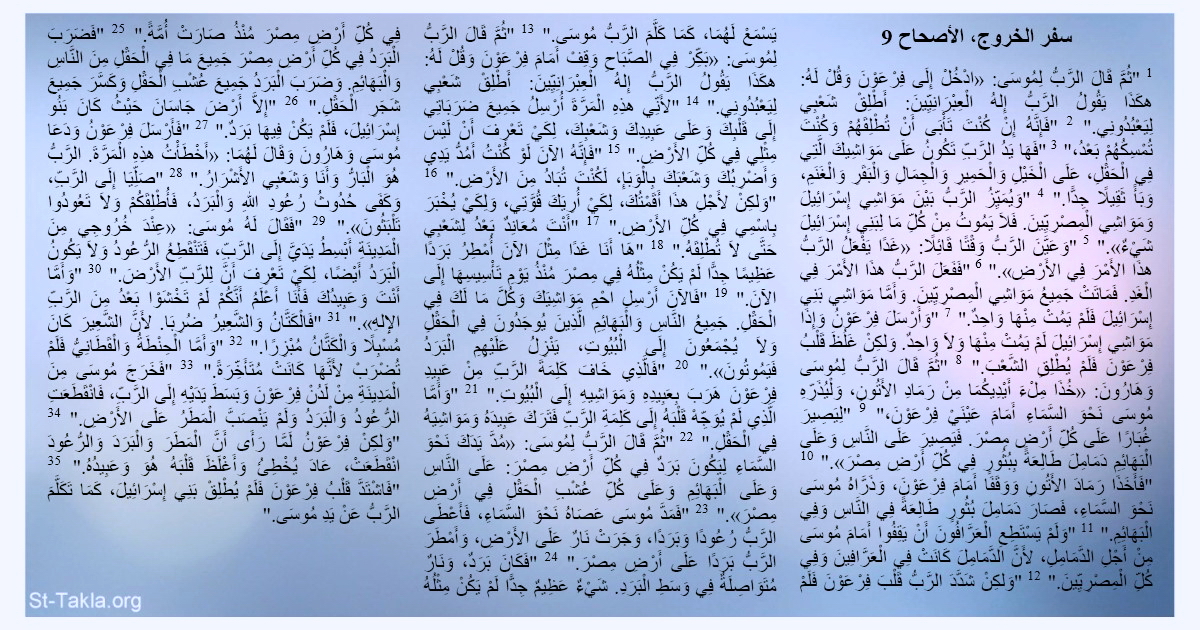 سفر الخروج، الأصحاح 9
1 "ثُمَّ قَالَ الرَّبُّ لِمُوسَى: «ادْخُلْ إِلَى فِرْعَوْنَ وَقُلْ لَهُ:
هكَذَا يَقُولُ الرَّبُّ إِلهُ الْعِبْرَانِيِّينَ: أَطْلِقْ شَعْبِي
لِيَعْبُدُونِي." 2 "فَإِنَّهُ إِنْ كُنْتَ تَأْبَى أَنْ تُطْلِقَهُمْ وَكُنْتَ
تُمْسِكُهُمْ بَعْدُ،" 3 "فَهَا يَدُ الرَّبِّ تَكُونُ عَلَى مَوَاشِيكَ الَّتِي
فِي الْحَقْلِ، عَلَى الْخَيْلِ وَالْحَمِيرِ وَالْجِمَالِ وَالْبَقَرِ وَالْغَنَمِ،
وَبَأً ثَقِيلًا جِدًّا." 4 "وَيُمَيِّزُ الرَّبُّ بَيْنَ مَوَاشِي إِسْرَائِيلَ
وَمَوَاشِي الْمِصْرِيِّينَ. فَلاَ يَمُوتُ مِنْ كُلِّ مَا لِبَنِي إِسْرَائِيلَ
شَيْءٌ»." 5 "وَعَيَّنَ الرَّبُّ وَقْتًا قَائِلًا: «غَدًا يَفْعَلُ الرَّبُّ
هذَا الأَمْرَ فِي الأَرْضِ»." 6 "فَفَعَلَ الرَّبُّ هذَا الأَمْرَ فِي
الْغَدِ. فَمَاتَتْ جَمِيعُ مَوَاشِي الْمِصْرِيِّينَ. وَأَمَّا مَوَاشِي بَنِي
إِسْرَائِيلَ فَلَمْ يَمُتْ مِنْهَا وَاحِدٌ." 7 "وَأَرْسَلَ فِرْعَوْنُ وَإِذَا
مَوَاشِي إِسْرَائِيلَ لَمْ يَمُتْ مِنْهَا وَلاَ وَاحِدٌ. وَلكِنْ غَلُظَ قَلْبُ
فِرْعَوْنَ فَلَمْ يُطْلِقِ الشَّعْبَ." 8 "ثُمَّ قَالَ الرَّبُّ لِمُوسَى
وَهَارُونَ: «خُذَا مِلْءَ أَيْدِيكُمَا مِنْ رَمَادِ الأَتُونِ، وَلْيُذَرِّهِ
مُوسَى نَحْوَ السَّمَاءِ أَمَامَ عَيْنَيْ فِرْعَوْنَ،" 9 "لِيَصِيرَ
غُبَارًا عَلَى كُلِّ أَرْضِ مِصْرَ. فَيَصِيرَ عَلَى النَّاسِ وَعَلَى
الْبَهَائِمِ دَمَامِلَ طَالِعَةً بِبُثُورٍ فِي كُلِّ أَرْضِ مِصْرَ»." 10
"فَأَخَذَا رَمَادَ الأَتُونِ وَوَقَفَا أَمَامَ فِرْعَوْنَ، وَذَرَّاهُ مُوسَى
نَحْوَ السَّمَاءِ، فَصَارَ دَمَامِلَ بُثُورٍ طَالِعَةً فِي النَّاسِ وَفِي
الْبَهَائِمِ." 11 "وَلَمْ يَسْتَطِعِ الْعَرَّافُونَ أَنْ يَقِفُوا أَمَامَ مُوسَى
مِنْ أَجْلِ الدَّمَامِلِ، لأَنَّ الدَّمَامِلَ كَانَتْ فِي الْعَرَّافِينَ وَفِي
كُلِّ الْمِصْرِيِّينَ." 12 "وَلكِنْ شَدَّدَ الرَّبُّ قَلْبَ فِرْعَوْنَ فَلَمْ
يَسْمَعْ لَهُمَا، كَمَا كَلَّمَ الرَّبُّ مُوسَى." 13 "ثُمَّ قَالَ الرَّبُّ
لِمُوسَى: «بَكِّرْ فِي الصَّبَاحِ وَقِفْ أَمَامَ فِرْعَوْنَ وَقُلْ لَهُ:
هكَذَا يَقُولُ الرَّبُّ إِلهُ الْعِبْرَانِيِّينَ: أَطْلِقْ شَعْبِي
لِيَعْبُدُونِي." 14 "لأَنِّي هذِهِ الْمَرَّةَ أُرْسِلُ جَمِيعَ ضَرَبَاتِي
إِلَى قَلْبِكَ وَعَلَى عَبِيدِكَ وَشَعْبِكَ، لِكَيْ تَعْرِفَ أَنْ لَيْسَ
مِثْلِي فِي كُلِّ الأَرْضِ." 15 "فَإِنَّهُ الآنَ لَوْ كُنْتُ أَمُدُّ يَدِي
وَأَضْرِبُكَ وَشَعْبَكَ بِالْوَبَإِ، لَكُنْتَ تُبَادُ مِنَ الأَرْضِ." 16
"وَلكِنْ لأَجْلِ هذَا أَقَمْتُكَ، لِكَيْ أُرِيَكَ قُوَّتِي، وَلِكَيْ يُخْبَرَ
بِاسْمِي فِي كُلِّ الأَرْضِ." 17 "أَنْتَ مُعَانِدٌ بَعْدُ لِشَعْبِي
حَتَّى لاَ تُطْلِقَهُ." 18 "هَا أَنَا غَدًا مِثْلَ الآنَ أُمْطِرُ بَرَدًا
عَظِيمًا جِدًّا لَمْ يَكُنْ مِثْلُهُ فِي مِصْرَ مُنْذُ يَوْمِ تَأْسِيسِهَا إِلَى
الآنَ." 19 "فَالآنَ أَرْسِلِ احْمِ مَوَاشِيَكَ وَكُلَّ مَا لَكَ فِي
الْحَقْلِ. جَمِيعُ النَّاسِ وَالْبَهَائِمِ الَّذِينَ يُوجَدُونَ فِي الْحَقْلِ
وَلاَ يُجْمَعُونَ إِلَى الْبُيُوتِ، يَنْزِلُ عَلَيْهِمِ الْبَرَدُ
فَيَمُوتُونَ»." 20 "فَالَّذِي خَافَ كَلِمَةَ الرَّبِّ مِنْ عَبِيدِ
فِرْعَوْنَ هَرَبَ بِعَبِيدِهِ وَمَوَاشِيهِ إِلَى الْبُيُوتِ." 21 "وَأَمَّا
الَّذِي لَمْ يُوَجِّهْ قَلْبَهُ إِلَى كَلِمَةِ الرَّبِّ فَتَرَكَ عَبِيدَهُ وَمَوَاشِيَهُ
فِي الْحَقْلِ." 22 "ثُمَّ قَالَ الرَّبُّ لِمُوسَى: «مُدَّ يَدَكَ نَحْوَ
السَّمَاءِ لِيَكُونَ بَرَدٌ فِي كُلِّ أَرْضِ مِصْرَ: عَلَى النَّاسِ
وَعَلَى الْبَهَائِمِ وَعَلَى كُلِّ عُشْبِ الْحَقْلِ فِي أَرْضِ
مِصْرَ»." 23 "فَمَدَّ مُوسَى عَصَاهُ نَحْوَ السَّمَاءِ، فَأَعْطَى
الرَّبُّ رُعُودًا وَبَرَدًا، وَجَرَتْ نَارٌ عَلَى الأَرْضِ، وَأَمْطَرَ
الرَّبُّ بَرَدًا عَلَى أَرْضِ مِصْرَ." 24 "فَكَانَ بَرَدٌ، وَنَارٌ
مُتَوَاصِلَةٌ فِي وَسَطِ الْبَرَدِ. شَيْءٌ عَظِيمٌ جِدًّا لَمْ يَكُنْ مِثْلُهُ
فِي كُلِّ أَرْضِ مِصْرَ مُنْذُ صَارَتْ أُمَّةً." 25 "فَضَرَبَ
الْبَرَدُ فِي كُلِّ أَرْضِ مِصْرَ جَمِيعَ مَا فِي الْحَقْلِ مِنَ النَّاسِ
وَالْبَهَائِمِ. وَضَرَبَ الْبَرَدُ جَمِيعَ عُشْبِ الْحَقْلِ وَكَسَّرَ جَمِيعَ
شَجَرِ الْحَقْلِ." 26 "إِلاَّ أَرْضَ جَاسَانَ حَيْثُ كَانَ بَنُو
إِسْرَائِيلَ، فَلَمْ يَكُنْ فِيهَا بَرَدٌ." 27 "فَأَرْسَلَ فِرْعَوْنُ وَدَعَا
مُوسَى وَهَارُونَ وَقَالَ لَهُمَا: «أَخْطَأْتُ هذِهِ الْمَرَّةَ. الرَّبُّ
هُوَ الْبَارُّ وَأَنَا وَشَعْبِي الأَشْرَارُ." 28 "صَلِّيَا إِلَى الرَّبِّ،
وَكَفَى حُدُوثُ رُعُودِ اللهِ وَالْبَرَدُ، فَأُطْلِقَكُمْ وَلاَ تَعُودُوا
تَلْبَثُونَ»." 29 "فَقَالَ لَهُ مُوسَى: «عِنْدَ خُرُوجِي مِنَ
الْمَدِينَةِ أَبْسِطُ يَدَيَّ إِلَى الرَّبِّ، فَتَنْقَطِعُ الرُّعُودُ وَلاَ يَكُونُ
الْبَرَدُ أَيْضًا، لِكَيْ تَعْرِفَ أَنَّ لِلرَّبِّ الأَرْضَ." 30 "وَأَمَّا
أَنْتَ وَعَبِيدُكَ فَأَنَا أَعْلَمُ أَنَّكُمْ لَمْ تَخْشَوْا بَعْدُ مِنَ الرَّبِّ
الإِلهِ»." 31 "فَالْكَتَّانُ وَالشَّعِيرُ ضُرِبَا. لأَنَّ الشَّعِيرَ كَانَ
مُسْبِلًا وَالْكَتَّانُ مُبْزِرًا." 32 "وَأَمَّا الْحِنْطَةُ وَالْقَطَانِيُّ فَلَمْ
تُضْرَبْ لأَنَّهَا كَانَتْ مُتَأَخِّرَةً." 33 "فَخَرَجَ مُوسَى مِنَ
الْمَدِينَةِ مِنْ لَدُنْ فِرْعَوْنَ وَبَسَطَ يَدَيْهِ إِلَى الرَّبِّ، فَانْقَطَعَتِ
الرُّعُودُ وَالْبَرَدُ وَلَمْ يَنْصَبَّ الْمَطَرُ عَلَى الأَرْضِ." 34
"وَلكِنْ فِرْعَوْنُ لَمَّا رَأَى أَنَّ الْمَطَرَ وَالْبَرَدَ وَالرُّعُودَ
انْقَطَعَتْ، عَادَ يُخْطِئُ وَأَغْلَظَ قَلْبَهُ هُوَ وَعَبِيدُهُ." 35
"فَاشْتَدَّ قَلْبُ فِرْعَوْنَ فَلَمْ يُطْلِقْ بَنِي إِسْرَائِيلَ، كَمَا تَكَلَّمَ
الرَّبُّ عَنْ يَدِ مُوسَى."
St-Takla.org